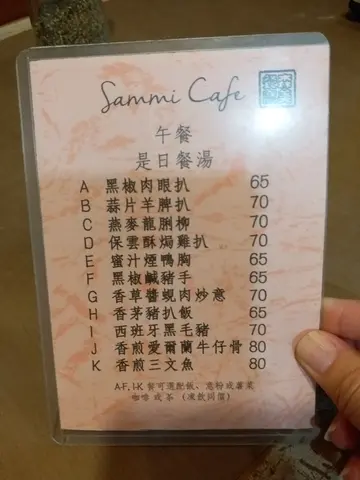 Sammi Cafe
午餐
是日餐湯
A 黑椒肉眼扒 65
B 蒜片羊脾扒 70
C 燕麥龍脷柳 70
D 保雲酥焗雞扒 70
E 蜜汁煙鴨胸 65
F 黑椒鹹豬手 65
G 香草醬蜆肉炒意 70
H 香茅豬扒飯 65
I 西班牙黑毛豬 70
J 香煎愛爾蘭牛仔骨 80
K 香煎三文魚 80
A-F, I-K 餐可選配飯、意粉或薯菜
咖啡 或 茶 (凍飲同價)